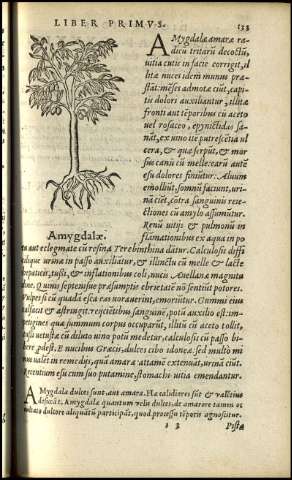 LIBER PRIMVS.
133
AMygdalæ amaræ ra-
dicũ tritarũ decoctũ,
uitia cutis in facie corrigit, il
litæ nuces idem munus præ-
stãt: mẽses admotæ ciũt, capi-
tis dolori auxiliantur, illitæ
fronti aut tẽporibus cũ aceto
uel rosaceo, epynictidas sa-
nãt, ex uino itẽ putrescẽtia ul
cera, & quæ serpũt, & mor
sus canũ cũ melle: earũ autẽ
esu dolores finiũtur. Aluum
emolliũt, somnũ faciunt, uri-
nã ciẽt, cõtra sanguinis reie-
ctiones cũ amylo assumũtur.
Renũ uitijs & pulmonũ in
flãmationibus ex aqua in po
Amygdalæ.
tu aut eclegmate cũ resina Terebinthina dãtur. Calculosis diffi
culique urinæ in passo auxiliãtur, & illinctũ cũ melle & lacte
iopaticis, tussi, & inflationibus coli, nucis Auellanæ magnitu
dine. Quinis septenisue præsumptis ebrietatẽ nõ sentiũt potores.
Vulpes si cũ quadã esca eas uorauerint, emoriũtur. Cummi eius
calfacit & astringit. reiectibus sanguinẽ, potũ auxilio est: im-
petigines quæ summum corpus occuparũt, illitũ cũ aceto tollit,
tussi uetustæ cũ diluto uino potũ medetur, calculosis cũ passo bi-
bere pdest. E nucibus Græcis, dulces cibo idoneæ. sed multo mi
nus ualẽt in remedijs, quã amaræ: attamẽ extenuãt, urinã ciũt.
Recentium esu cum suo putamine, stomachi uitia emendantur.
AMygdala dulces sunt, aut amara. Hæ calidiores sũt &
desiccãt. Amygdala quantum uelis dulces, de amarore tamen oc
cultato dulcore aliquãtũ participãt, quod processu tẽporis agnoscitur.
i 3
Pistæ